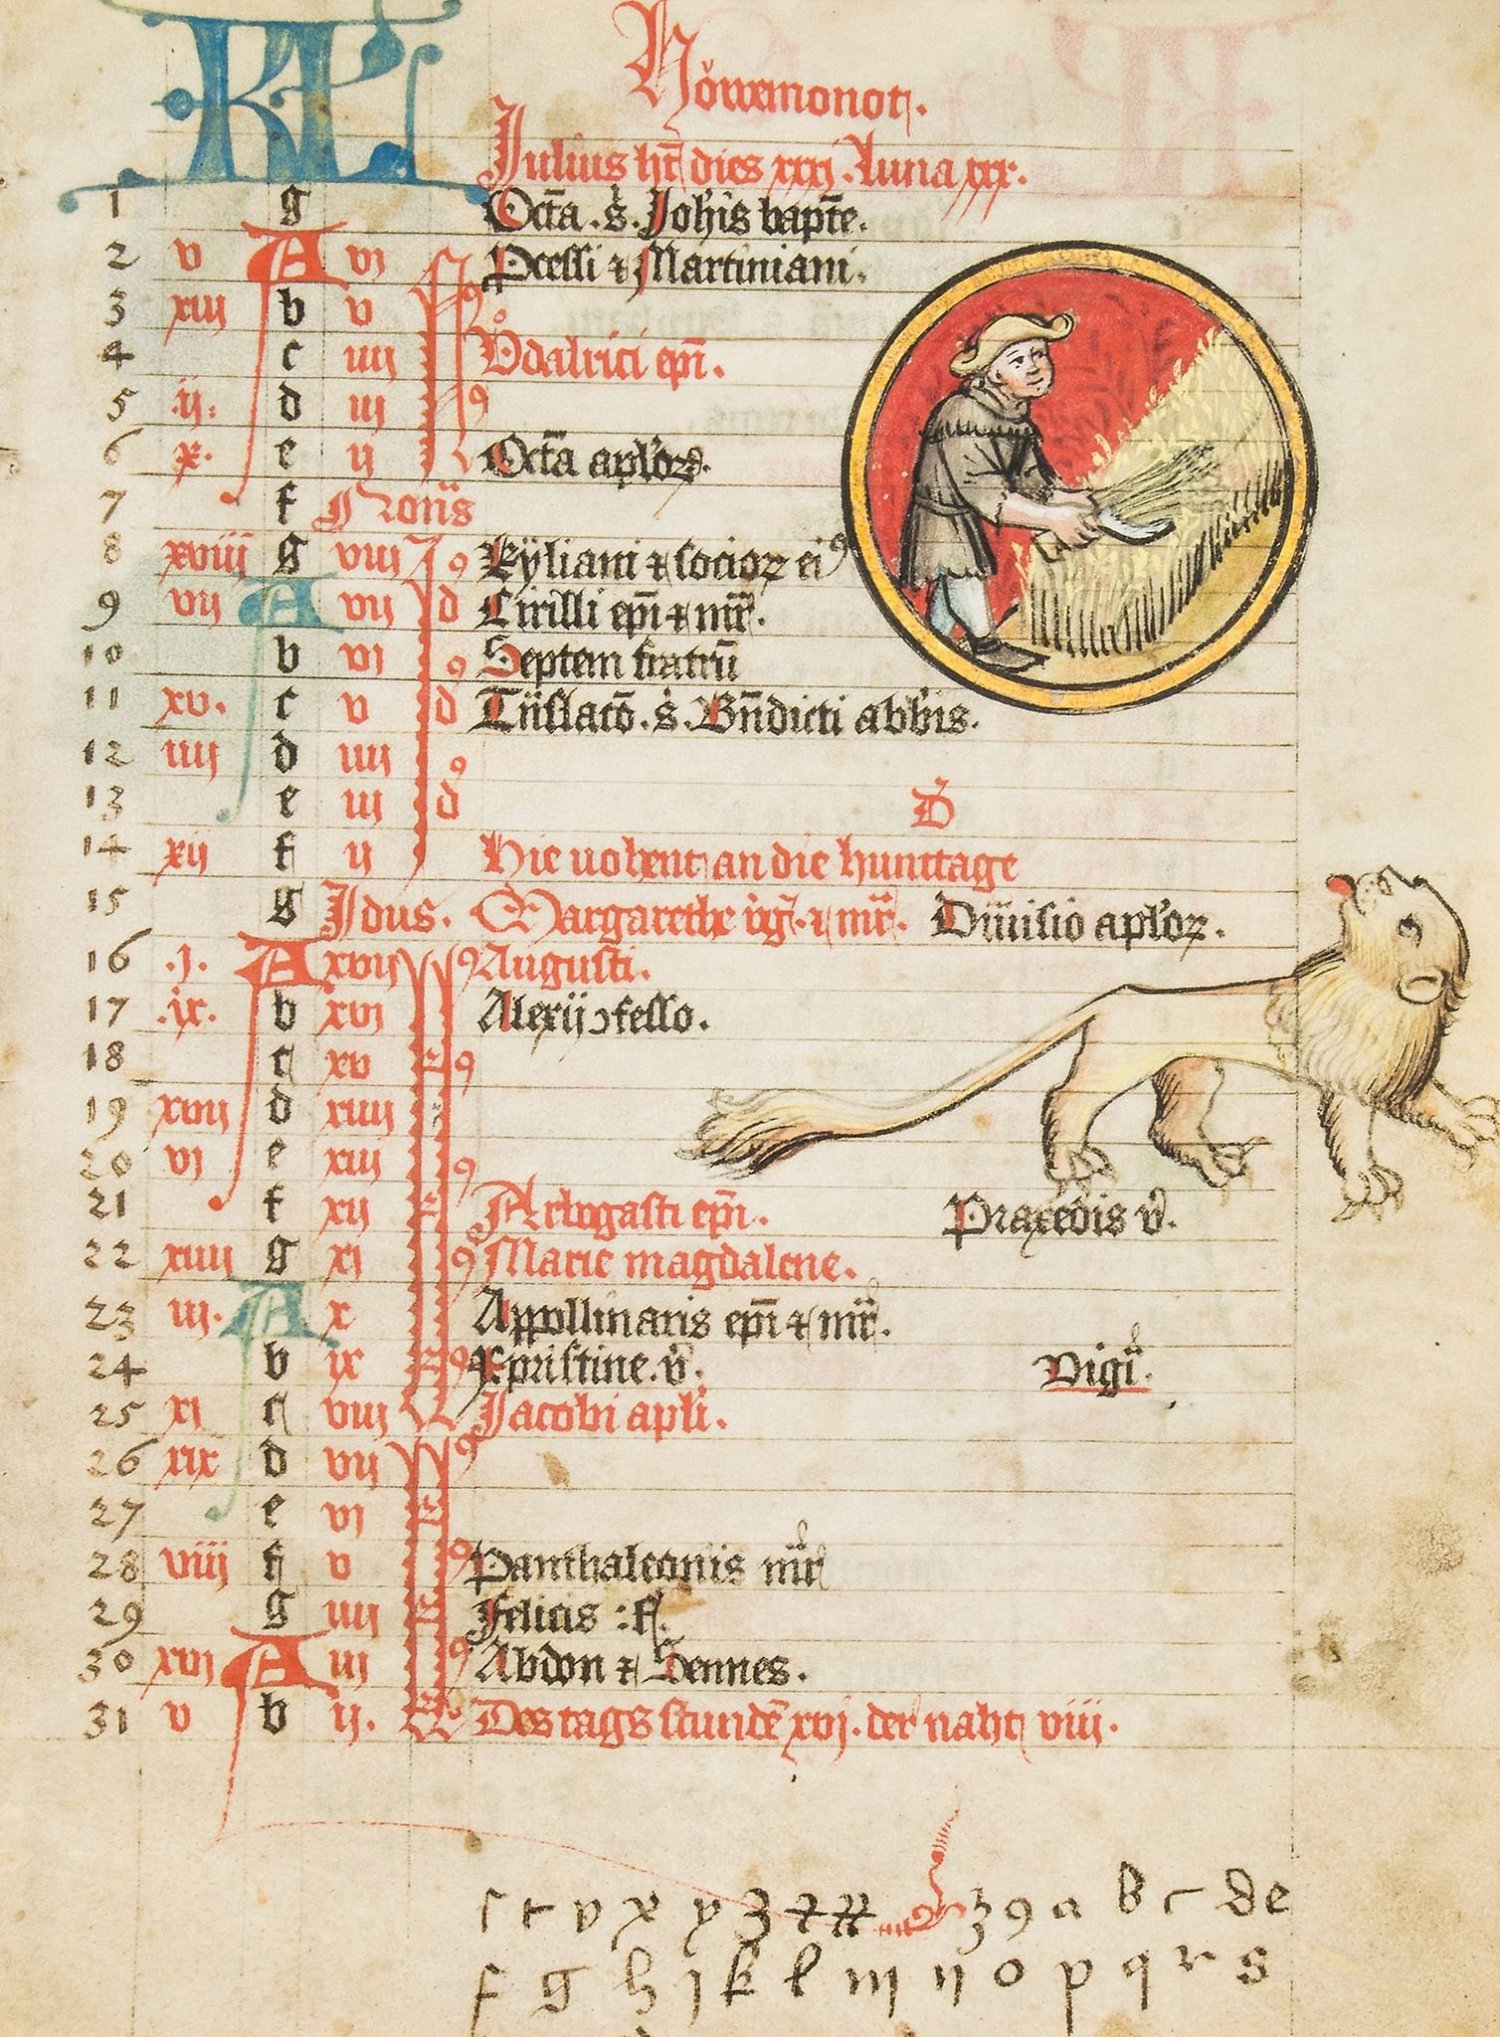 KL
Höwmonot.
Julius ht̄ dies xxxj. Luna xxx.
1 g Octā. s. Joh'is bapt̄e.
2 v A vj N9 Pcessi ⁊ Martiniani.
3 xiij b v
4 c iiij Vͦdalrici ep̄i.
5 ij. d iij 9
6 x. e ij Octā aplōꝝ.
7 f Nonis
8 xviij g viij J9 Kyliani ⁊ socioꝝ ei9
9 vij A vij d Cirilli ep̄i ⁊ mr̄.
10 b vj 9 Septem fratrū
11 xv. c v d Tn̄slacō. s. Bn̄dicti abbis.
12 iiij d iiij 9
13 e iij d
14 xij f ij Hie vohent an die hunttage
15 g Jdus. Margarethe v̄g. ⁊ mr̄. Diuisio aplōꝝ.
16 .j. A xvij 9 Augusti.
17 .ix. b xvj Alexij ↄfesso.
18 c xv 9
19 xvij d xiiij
20 vj e xiij 9
21 f xij Arbogasti ep̄i. Praxedis v̄.
22 xiiij g xj 9 Marie magdalene.
23 iij. A x Appollinaris ep̄i ⁊ mr̄.
24 b ix 9 Xpristine. v̄. Vigil'.
25 xj c viij Jacobi apli.
26 xix d vij 9
27 e vj
28 viij f v 9 Panthaleonis mr̄
29 g iiij Felicis : f.
30 xvj A iij 9 Abdon ⁊ Sennes.
31 v b ij. Des tags stundē xvj. der naht viij.
s t v x y z ⁊ ꝝ ꝫ 9 a b c d e
f g h j k l m n o p q r s